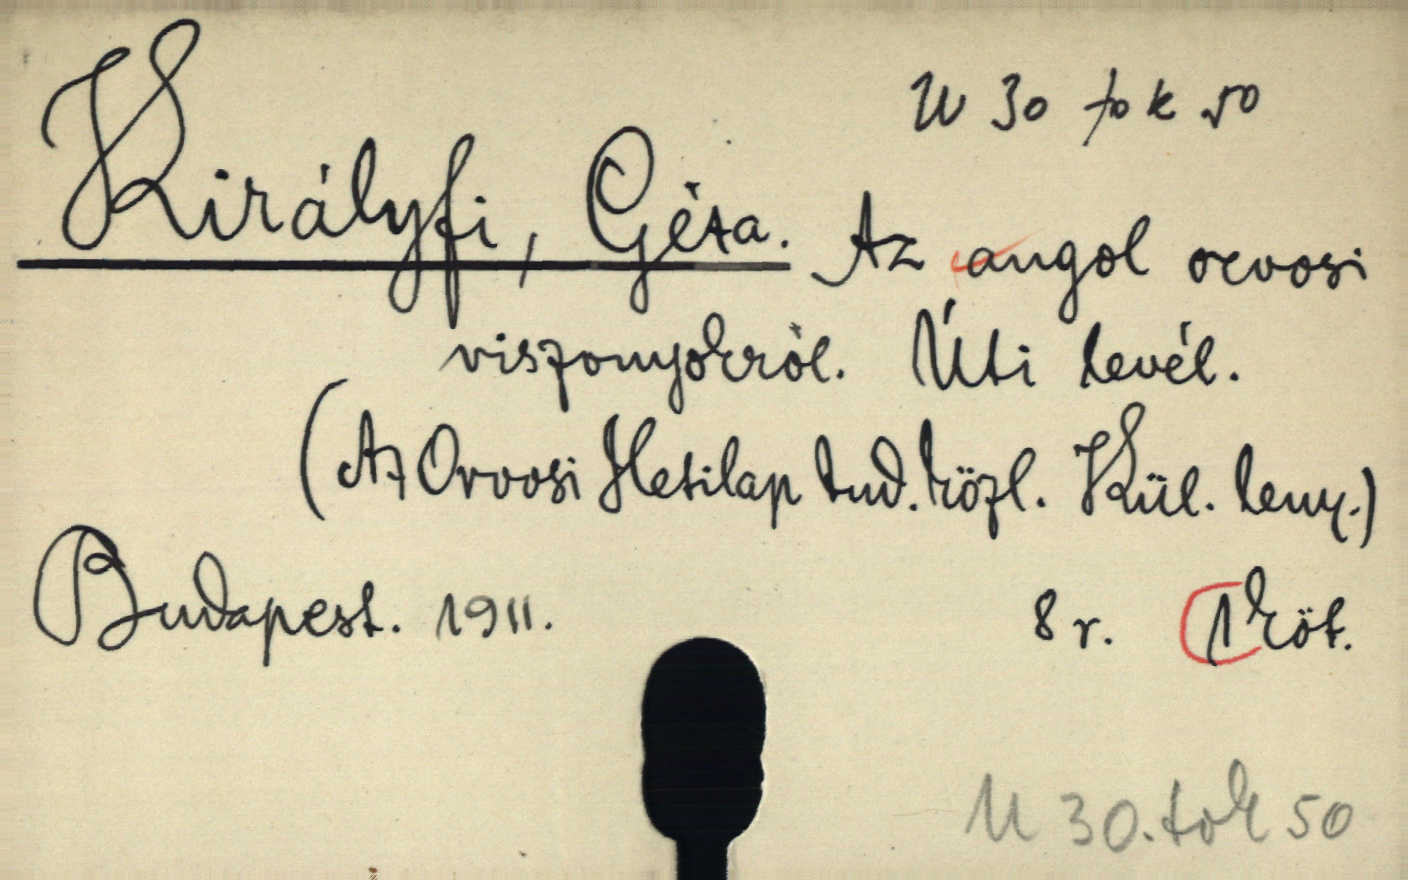 U 30 tok 50
Királyfi, Géza. Az angol orvosi
viszonyokról. Úti levél.
(Az Orvosi Hetilap tud. közl. Kül. leny.)
Budapest. 1911. 8 r. 1 köt.
U 30. tok 50